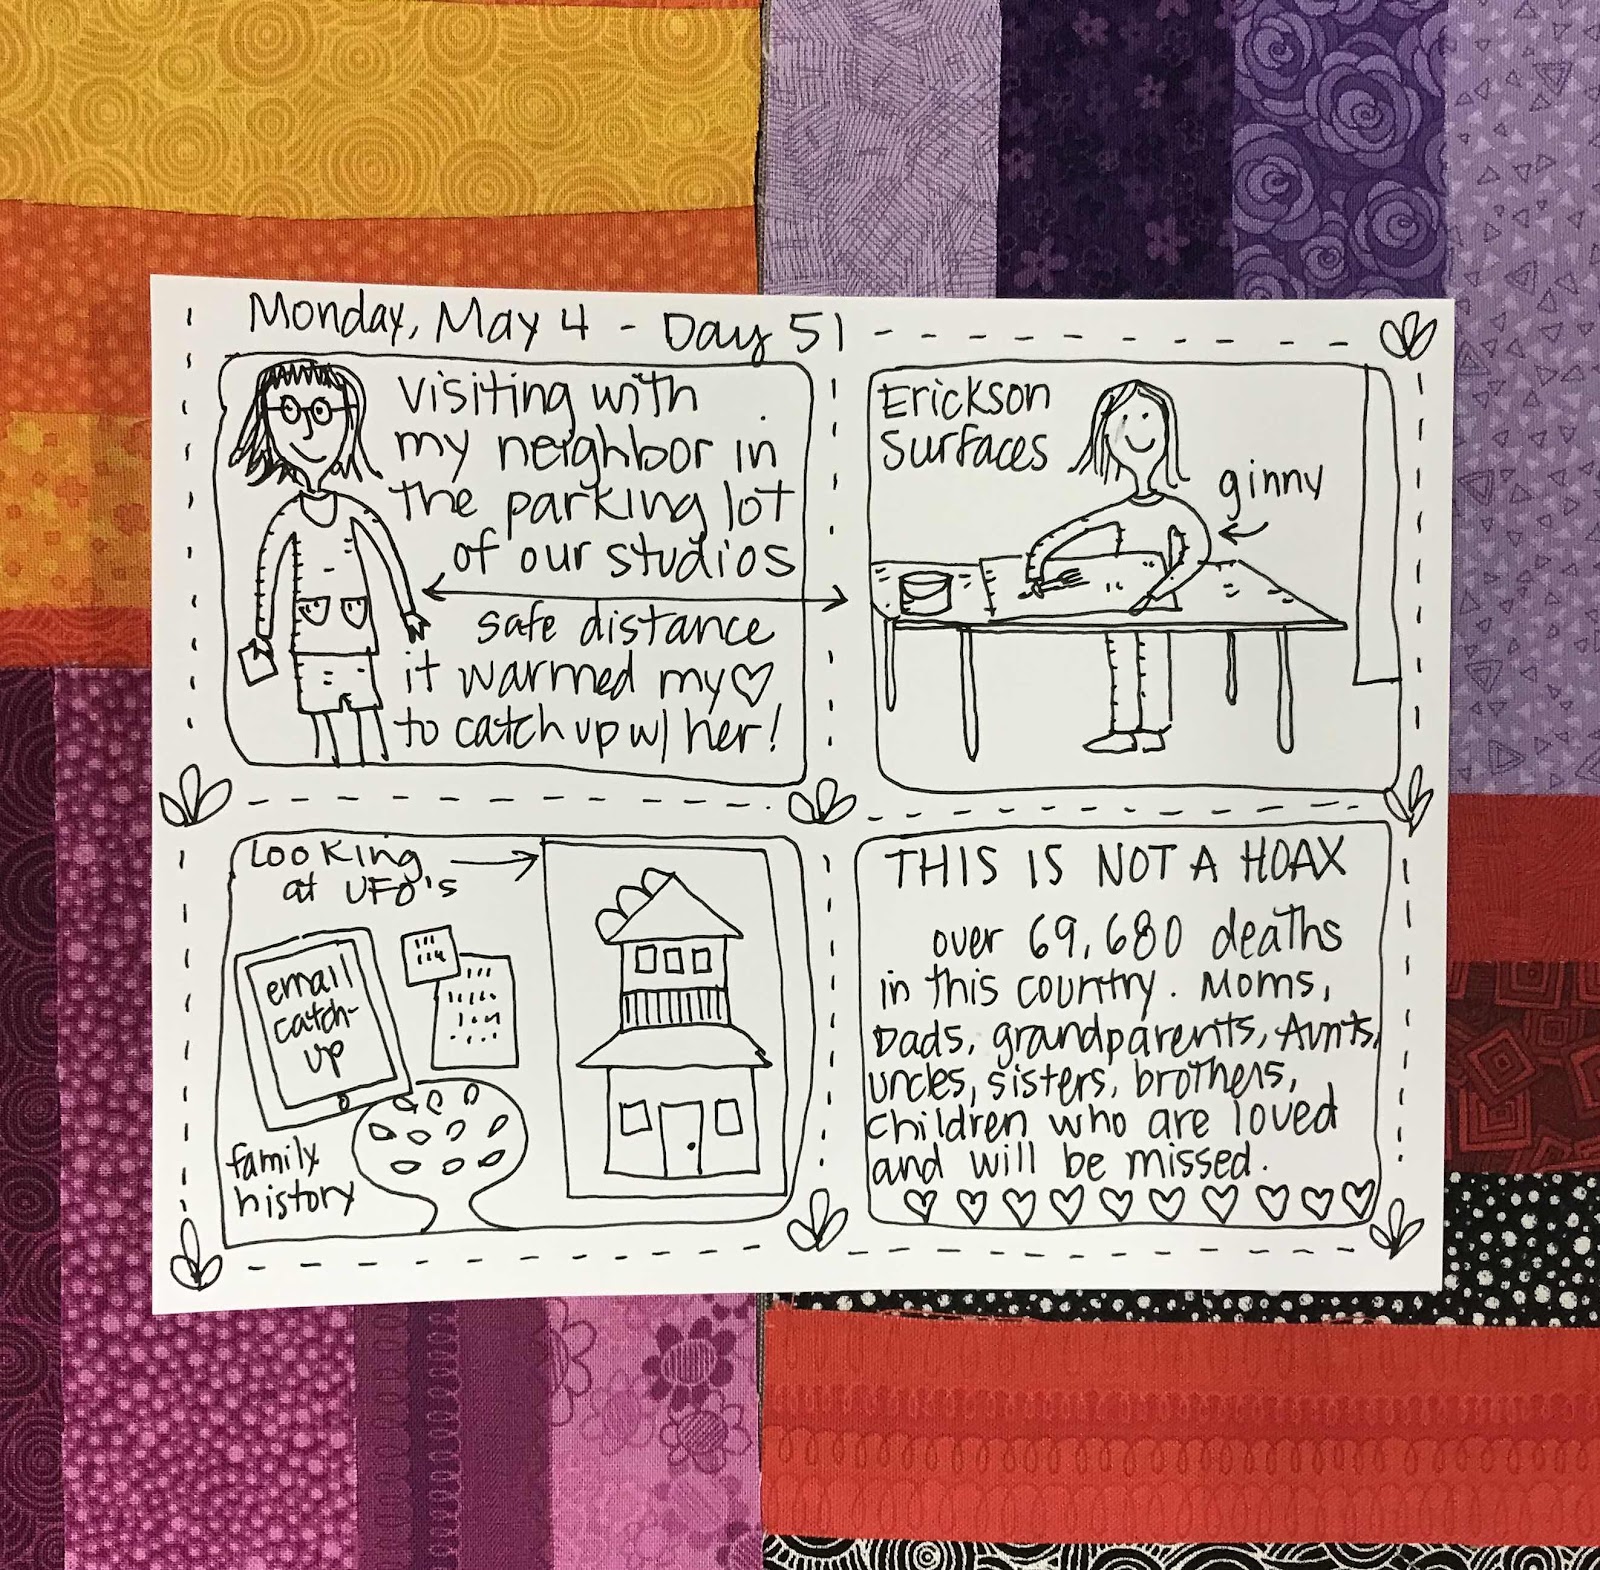 Monday, May 4 - Day 51
Visiting with
my neighbor in
the parking lot
of our studios
safe distance
it warmed my
to catch up w/ her!
Erickson
Surfaces
ginny
Looking
at UFO's
email
catch-
up
family
history
THIS IS NOT A HOAX
over 69,680 deaths
in this country. Moms,
Dads, grandparents, Aunts,
uncles, sisters, brothers,
children who are loved
and will be missed.